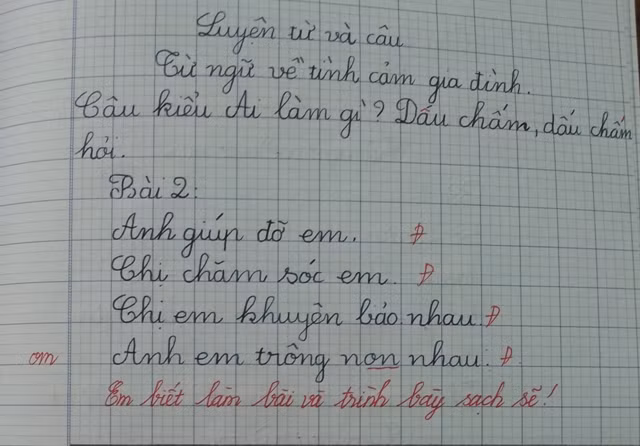 Luyện từ và câu
Từ ngữ về tình cảm gia đình.
Câu kiểu Ai làm gì? Dấu chấm, dấu chấm
hỏi.
Bài 2:
Anh giúp đỡ em. Đ
Chị chăm sóc em. Đ
Chị em khuyên bảo nhau. Đ
om Anh em trông non nhau. Đ
Em biết làm bài và trình bày sạch sẽ!